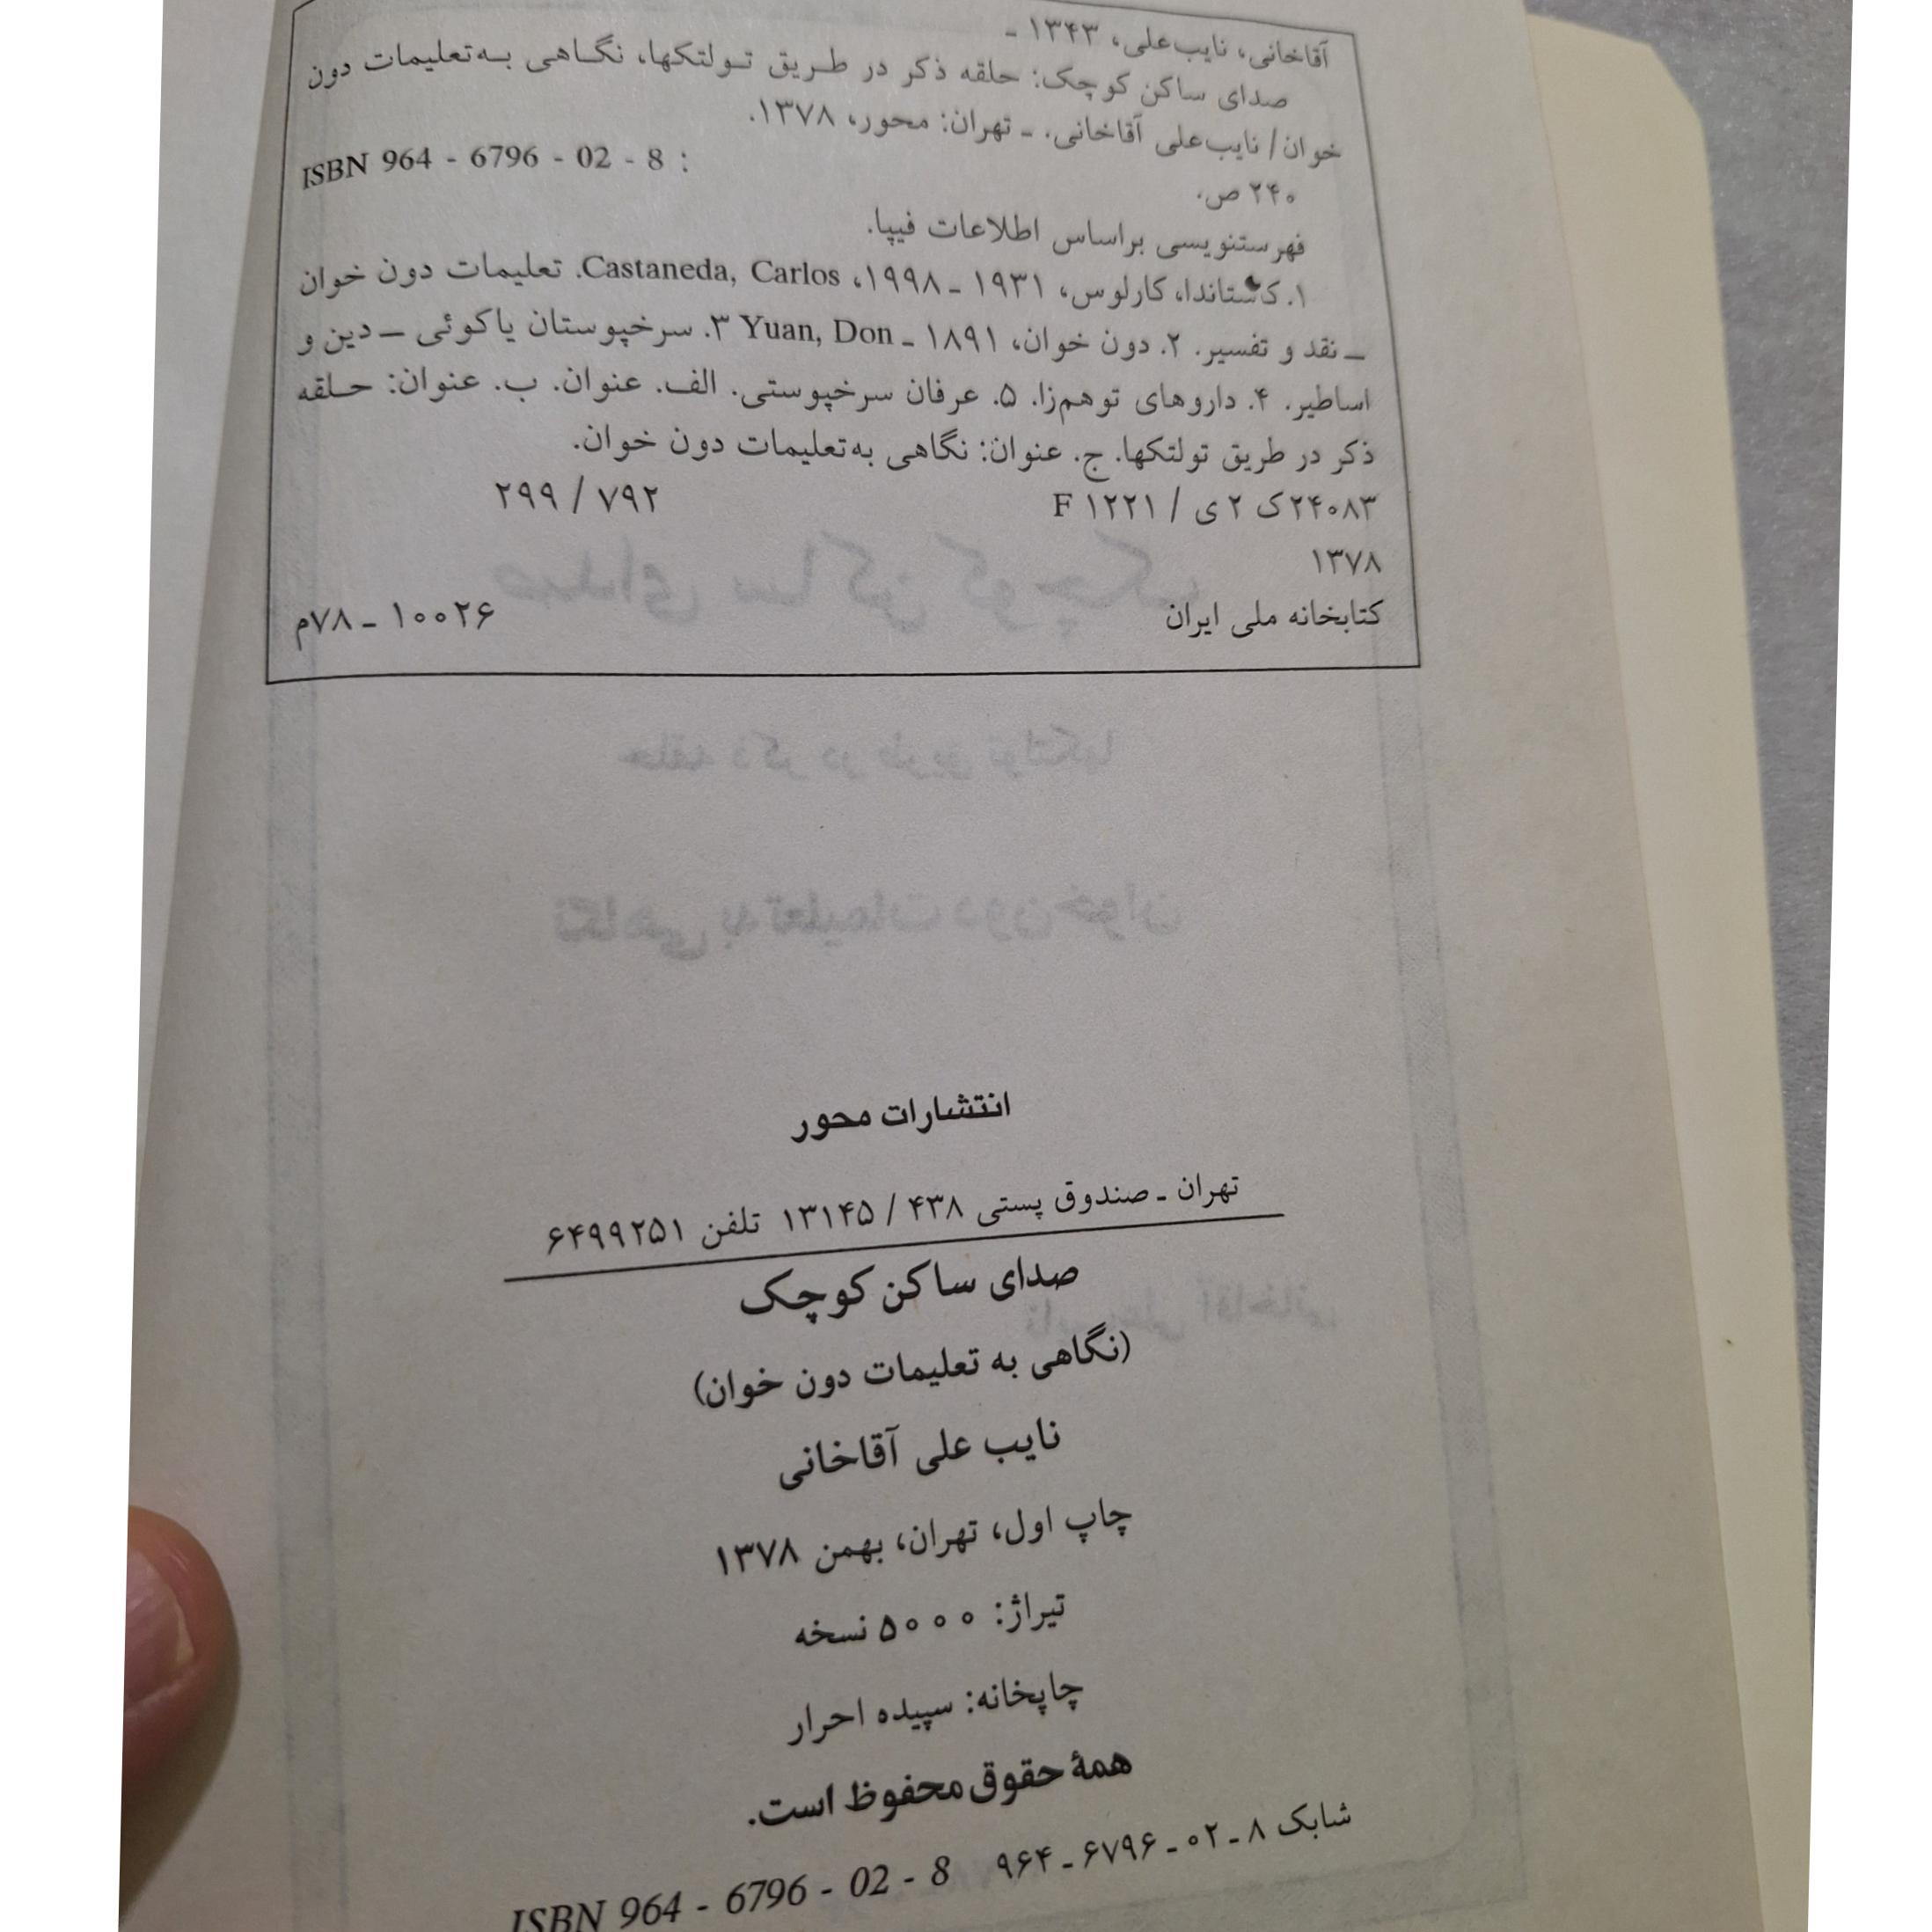 آقاخانی، نایب‌علی، ۱۳۴۳ ـ
صدای ساکن کوچک: حلقه ذکر در طریق تولتکها، نگاهی به‌تعلیمات دون
خوان/ نایب‌علی آقاخانی. ـ تهران: محور، ۱۳۷۸.
ISBN 964 - 6796 - 02 - 8 :
۲۴۰ ص.
فهرستنویسی براساس اطلاعات فیپا.
۱. کاستاندا، کارلوس، ۱۹۳۱ ـ ۱۹۹۸، Castaneda, Carlos. تعلیمات دون خوان
ـ نقد و تفسیر. ۲. دون خوان، ۱۸۹۱ ـ Yuan, Don ۳. سرخپوستان یاکوئی ـ دین و
اساطیر. ۴. داروهای توهم‌زا. ۵. عرفان سرخپوستی. الف. عنوان. ب. عنوان: حلقه
ذکر در طریق تولتکها. ج. عنوان: نگاهی به‌تعلیمات دون خوان.
۲۴۰۸۳ک ۲ ی / F ۱۲۲۱ ۲۹۹ / ۷۹۲
۱۳۷۸
کتابخانه ملی ایران ۱۰۰۲۶ ـ ۷۸م
انتشارات محور
تهران ـ صندوق پستی ۴۳۸ / ۱۳۱۴۵ تلفن ۶۴۹۹۲۵۱
صدای ساکن کوچک
(نگاهی به تعلیمات دون خوان)
نایب علی آقاخانی
چاپ اول، تهران، بهمن ۱۳۷۸
تیراژ: ۵۰۰۰ نسخه
چاپخانه: سپیده احرار
همهٔ حقوق محفوظ است.
شابک ۸ ـ ۰۲ ـ ۶۷۹۶ ـ ۹۶۴ ISBN 964 - 6796 - 02 - 8